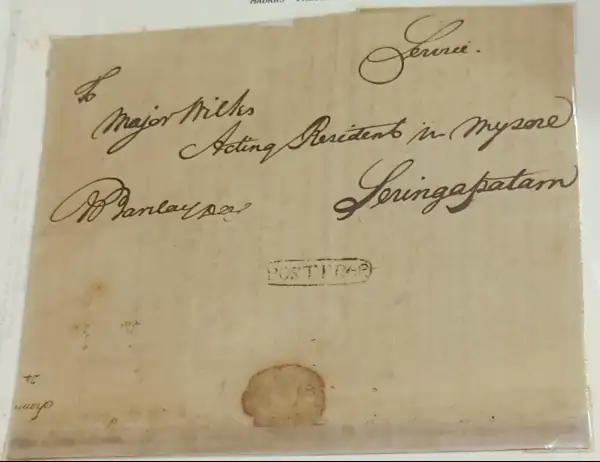 MADRAS
Service.
To
Major Wilks
Acting Resident in Mysore
Seringapatam
Barclay
POST FREE